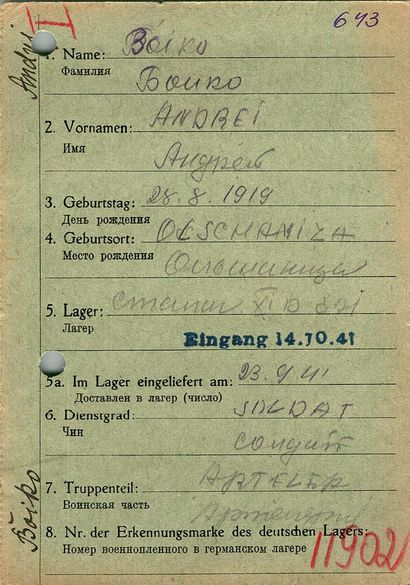 643
I
Andrej
1. Name: Boiko
Фамилия
Бойко
2. Vornamen: ANDREI
Имя
Андрей
3. Geburtstag: 28.8.1919
День рождения
4. Geburtsort: OLSCHANIZA
Место рождения
Ольшаница
5. Lager: сталаг XI D 321
Лагер
Eingang 14.10.41
5a. Im Lager eingeliefert am: 23.9.41
Доставлен в лагер (число)
6. Dienstgrad: SOLDAT
Чин
солдат
7. Truppenteil: ARTELER
Воинская часть
8. Nr. der Erkennungsmarke des deutschen Lagers:
Номер военнопленного в германском лагере
11902
Boiko